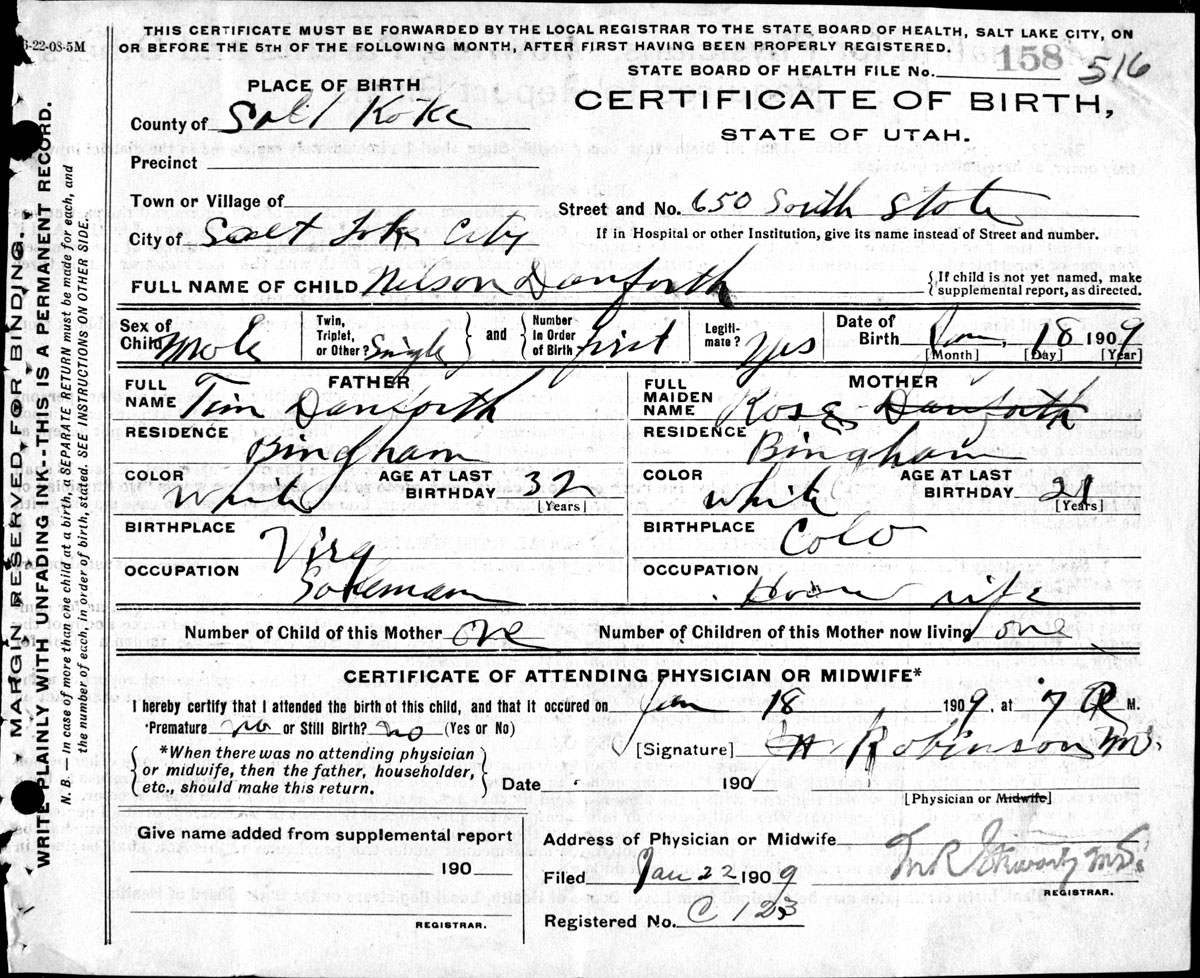 THIS CERTIFICATE MUST BE FORWARDED BY THE LOCAL REGISTRAR TO THE STATE BOARD OF HEALTH, SALT LAKE CITY, ON
OR BEFORE THE 5TH OF THE FOLLOWING MONTH, AFTER FIRST HAVING BEEN PROPERLY REGISTERED.
-22-08-5M
STATE BOARD OF HEALTH FILE No. 158 516
PLACE OF BIRTH
CERTIFICATE OF BIRTH,
STATE OF UTAH.
County of Salt Lake
Precinct
Town or Village of
Street and No. 650 South State
City of Salt Lake City
If in Hospital or other Institution, give its name instead of Street and number.
FULL NAME OF CHILD Nelson Danforth
{If child is not yet named, make supplemental report, as directed.
Sex of Child Male
Twin, Triplet, or Other? Single } and { Number in Order of Birth first
Legitimate? Yes
Date of Birth Jan. 18 1909
[Month] [Day] [Year]
FATHER
FULL NAME Tim Danforth
RESIDENCE Bingham
COLOR White
AGE AT LAST BIRTHDAY 32
[Years]
BIRTHPLACE Virg
OCCUPATION
MOTHER
FULL MAIDEN NAME Rose Danforth
RESIDENCE Bingham
COLOR White
AGE AT LAST BIRTHDAY 21
[Years]
BIRTHPLACE Colo
OCCUPATION House wife
Number of Child of this Mother one
Number of Children of this Mother now living one
CERTIFICATE OF ATTENDING PHYSICIAN OR MIDWIFE*
I hereby certify that I attended the birth of this child, and that it occured on Jan 18 1909, at 7 M.
*Premature no or Still Birth? no (Yes or No)
[Signature] Robinson
{*When there was no attending physician
or midwife, then the father, householder,
etc., should make this return.}
Date 190
[Physician or Midwife]
Give name added from supplemental report
190
REGISTRAR.
Address of Physician or Midwife
Filed Jan 22 1909
REGISTRAR.
Registered No. C 123
MARGIN RESERVED FOR BINDING.
WRITE PLAINLY WITH UNFADING INK--THIS IS A PERMANENT RECORD.
N. B.—In case of more than one child at a birth, a SEPARATE RETURN must be made for each, and
the number of each, in order of birth, stated. SEE INSTRUCTIONS ON OTHER SIDE.